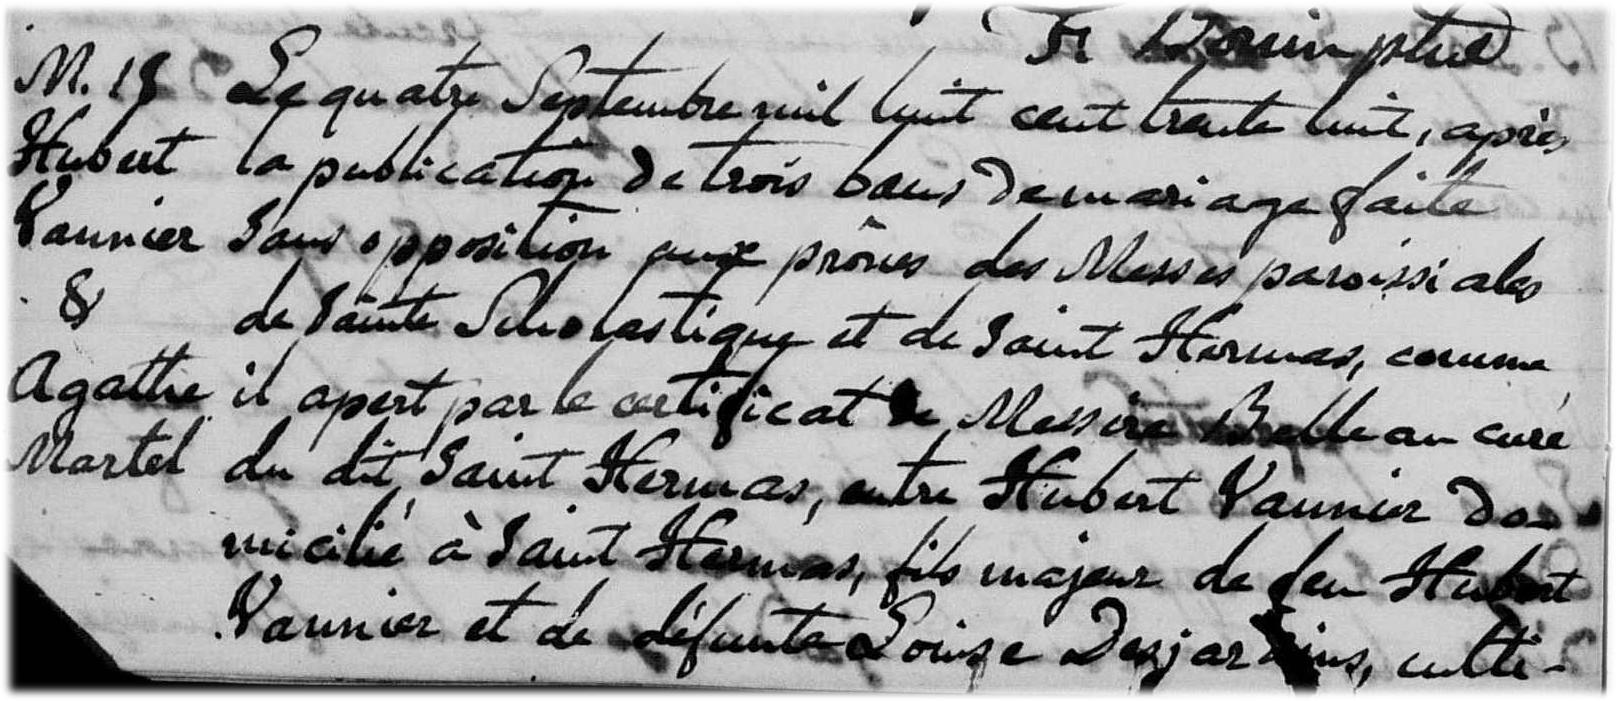 M. 18
Hubert
Vannier
&
Agathe
Martel
Le quatre Septembre mil huit cent trente huit, après
la publication de trois bans de mariage faite
sans opposition aux prônes des Messes paroissiales
de Sainte Scholastique et de Saint Hermas, comme
il apert par le certificat de Messire Belleau curé
du dit Saint Hermas, entre Hubert Vannier do-
micilié à Saint Hermas, fils majeur de feu Hubert
Vannier et de défunte Louise Desjardins, culti-